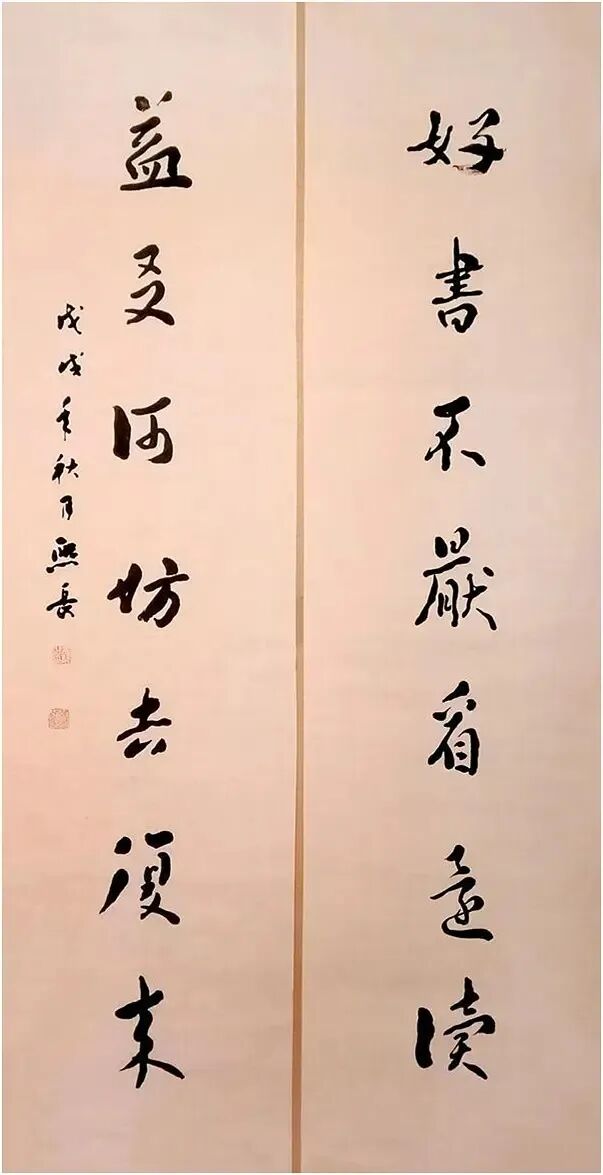 好書不厭看還讀
益友何妨去復來
戊戌年秋月熙長